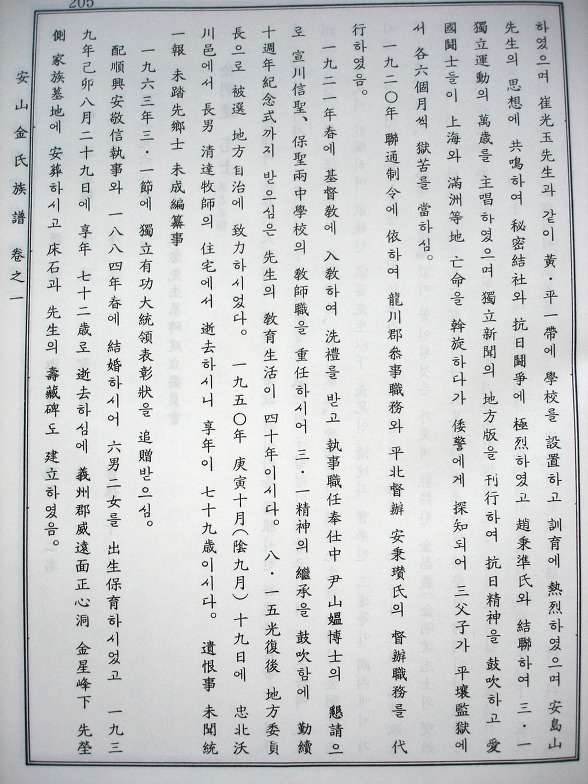 205
하였으며 崔光玉先生과 같이 黃·平一帶에 學校를 設置하고 訓育에 熱烈하였으며 安島山
先生의 思想에 共鳴하여 秘密結社와 抗日鬪爭에 極烈하였고 趙秉準氏와 結聯하여 三·一
獨立運動의 萬歲를 主唱하였으며 獨立新聞의 地方版을 刊行하여 抗日精神을 鼓吹하고 愛
國鬪士들이 上海와 滿洲等地 亡命을 斡旋하다가 倭警에게 探知되어 三父子가 平壤監獄에
서 各六個月씩 獄苦를 當하심。
一九二○年 聯通制令에 依하여 龍川郡叅事職務와 平北督辦 安秉瓚氏의 督辦職務를 代
行하였음。
一九二一年春에 基督敎에 入敎하여 洗禮를 받고 執事職任奉仕中 尹山媼博士의 懇請으
로 宣川信聖、保聖兩中學校의 敎師職을 重任하시어 三·一精神의 繼承을 鼓吹함에 勤續
十週年紀念式까지 받으심은 先生의 敎育生活이 四十年이시다。 八·一五光復後 地方委員
長으로 被選 地方自治에 致力하시었다。 一九五○年 庚寅十月(陰九月) 十九日에 忠北沃
川邑에서 長男 淸達牧師의 住宅에서 逝去하시니 享年이 七十九歲이시다。 遺恨事 未聞統
一報 未踏先鄕土 未成編纂事
一九六三年三·一節에 獨立有功大統領表彰狀을 追贈받으심。
配順興安敬信執事와 一八八四年春에 結婚하시어 六男二女를 出生保育하시었고 一九三
九年己卯八月二十九日에 享年 七十二歲로 逝去하심에 義州郡威遠面正心洞 金星峰下 先塋
側 家族墓地에 安葬하시고 床石과 先生의 壽藏碑도 建立하였음。
安山金氏族譜 卷之一